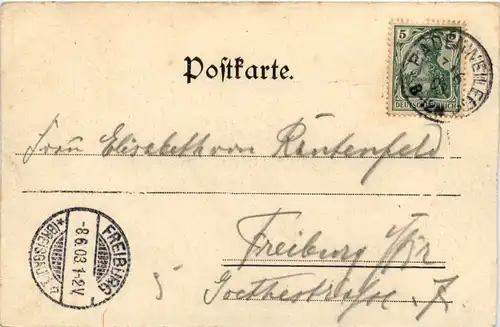 5
BADENWEILER
DEUTSCHES REICH
Postkarte.
Frau Elisabeth von Rautenfeld
Freiburg i/Br
Goethestraße
FREIBURG
-8.6.03.1-2V.
*(BREISGAU)